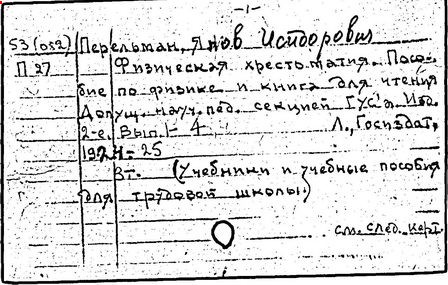 -1-
53(052) Перельман, Яков Исидорович
П 27 Физическая хрестоматия. Посо-
бие по физике и книга для чтения
Допущ. науч. пед. секцией ГУС'а Изд.
2-е. Вып. 1-4 Л., Госиздат,
1924-25
3т. (Учебники и учебные пособия
для трудовой школы.)
см. след. карт.